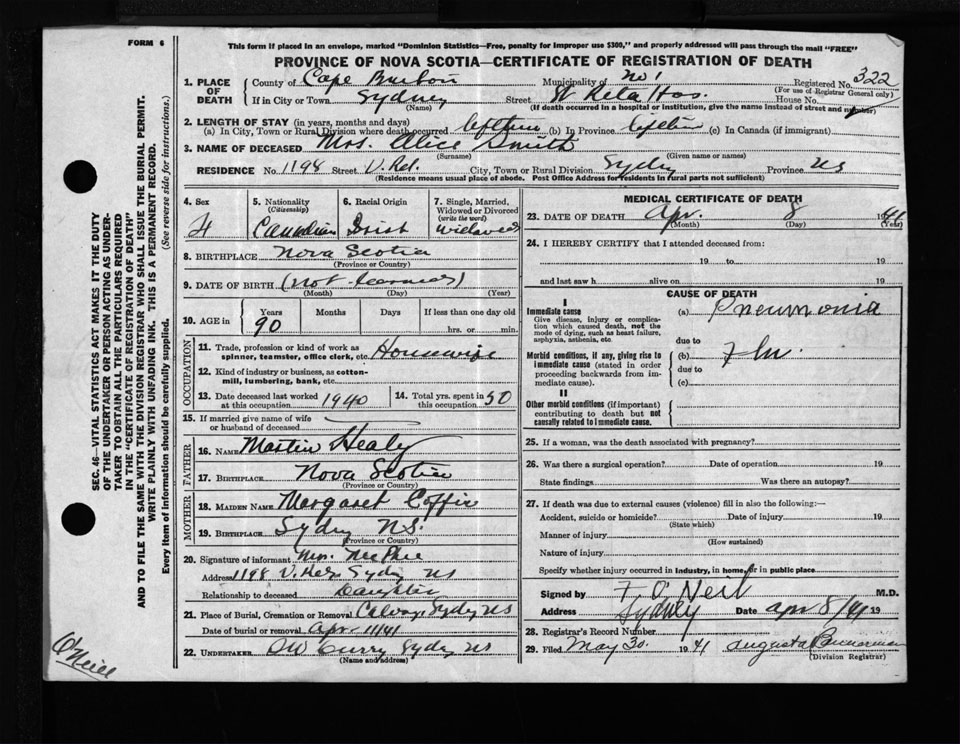 FORM 6
This form if placed in an envelope, marked "Dominion Statistics—Free, penalty for improper use $300," and properly addressed will pass through the mail "FREE"
PROVINCE OF NOVA SCOTIA—CERTIFICATE OF REGISTRATION OF DEATH
1. PLACE OF DEATH County of Cape Breton Municipality of No 1 Registered No. 322
(For use of Registrar General only)
If in City or Town Sydney Street St Rita Hos. House No.
(Name) (If death occurred in a hospital or institution, give the name instead of street and number)
2. LENGTH OF STAY (in years, months and days)
(a) In City, Town or Rural Division where death occurred lifetime (b) In Province lifetime (c) In Canada (if immigrant)
3. NAME OF DECEASED Mrs. Alice Smith
(Surname) (Given name or names)
RESIDENCE No. 1198 Street V. Rd. City, Town or Rural Division Sydney Province NS
(Residence means usual place of abode. Post Office Address for residents in rural parts not sufficient)
4. Sex 5. Nationality 6. Racial Origin 7. Single, Married,
(Citizenship) Widowed or Divorced
(write the word)
Canadian Irish widowed
8. BIRTHPLACE Nova Scotia
(Province or Country)
9. DATE OF BIRTH (not learned)
(Month) (Day) (Year)
10. AGE in Years Months Days If less than one day old
90 hrs. or min.
OCCUPATION
11. Trade, profession or kind of work as
spinner, teamster, office clerk, etc. Housewife
12. Kind of industry or business, as cotton-
mill, lumbering, bank, etc.
13. Date deceased last worked at this occupation 1940 14. Total yrs. spent in this occupation 50
15. If married give name of wife
or husband of deceased
FATHER
16. NAME Martin Healy
17. BIRTHPLACE Nova Scotia
(Province or Country)
MOTHER
18. MAIDEN NAME Margaret
19. BIRTHPLACE Sydney N.S.
(Province or Country)
20. Signature of informant Mrs. McPhee
Address 1198 Sydney NS
Relationship to deceased Daughter
21. Place of Burial, Cremation or Removal Calvary, Sydney NS
Date of burial or removal Apr. 11/41
22. UNDERTAKER DW Curry Sydney NS
(Name and address)
MEDICAL CERTIFICATE OF DEATH
23. DATE OF DEATH Apr. 8 1941
(Month) (Day) (Year)
24. I HEREBY CERTIFY that I attended deceased from:
19 to 19
and last saw h alive on 19
CAUSE OF DEATH
I
Immediate cause (a) Pneumonia
Give disease, injury or complica-
tion which caused death, not the
mode of dying, such as heart failure,
asphyxia, asthenia, etc. due to
Morbid conditions, if any, giving rise to (b) Flu.
immediate cause (stated in order due to
proceeding backwards from im-
mediate cause). (c)
II
Other morbid conditions (if important)
contributing to death but not
causally related to immediate cause.
25. If a woman, was the death associated with pregnancy?
26. Was there a surgical operation? Date of operation 19
State findings Was there an autopsy?
27. If death was due to external causes (violence) fill in also the following:—
Accident, suicide or homicide? Date of injury 19
(State which)
Manner of injury
(How sustained)
Nature of injury
Specify whether injury occurred in industry, in home, or in public place
Signed by F. O'Neil M.D.
Address Sydney Date Apr 8/41 19
28. Registrar's Record Number
29. Filed May 30. 1941 Augusta
(Division Registrar)
SEC. 46—VITAL STATISTICS ACT MAKES IT THE DUTY
OF THE UNDERTAKER OR PERSON ACTING AS UNDER-
TAKER TO OBTAIN ALL THE PARTICULARS REQUIRED
IN THE "CERTIFICATE OF REGISTRATION OF DEATH"
AND TO FILE THE SAME WITH THE DIVISION REGISTRAR WHO SHALL ISSUE THE BURIAL PERMIT.
WRITE PLAINLY WITH UNFADING INK. THIS IS A PERMANENT RECORD.
Every item of information should be carefully supplied. (See reverse side for instructions.)
O'Neill